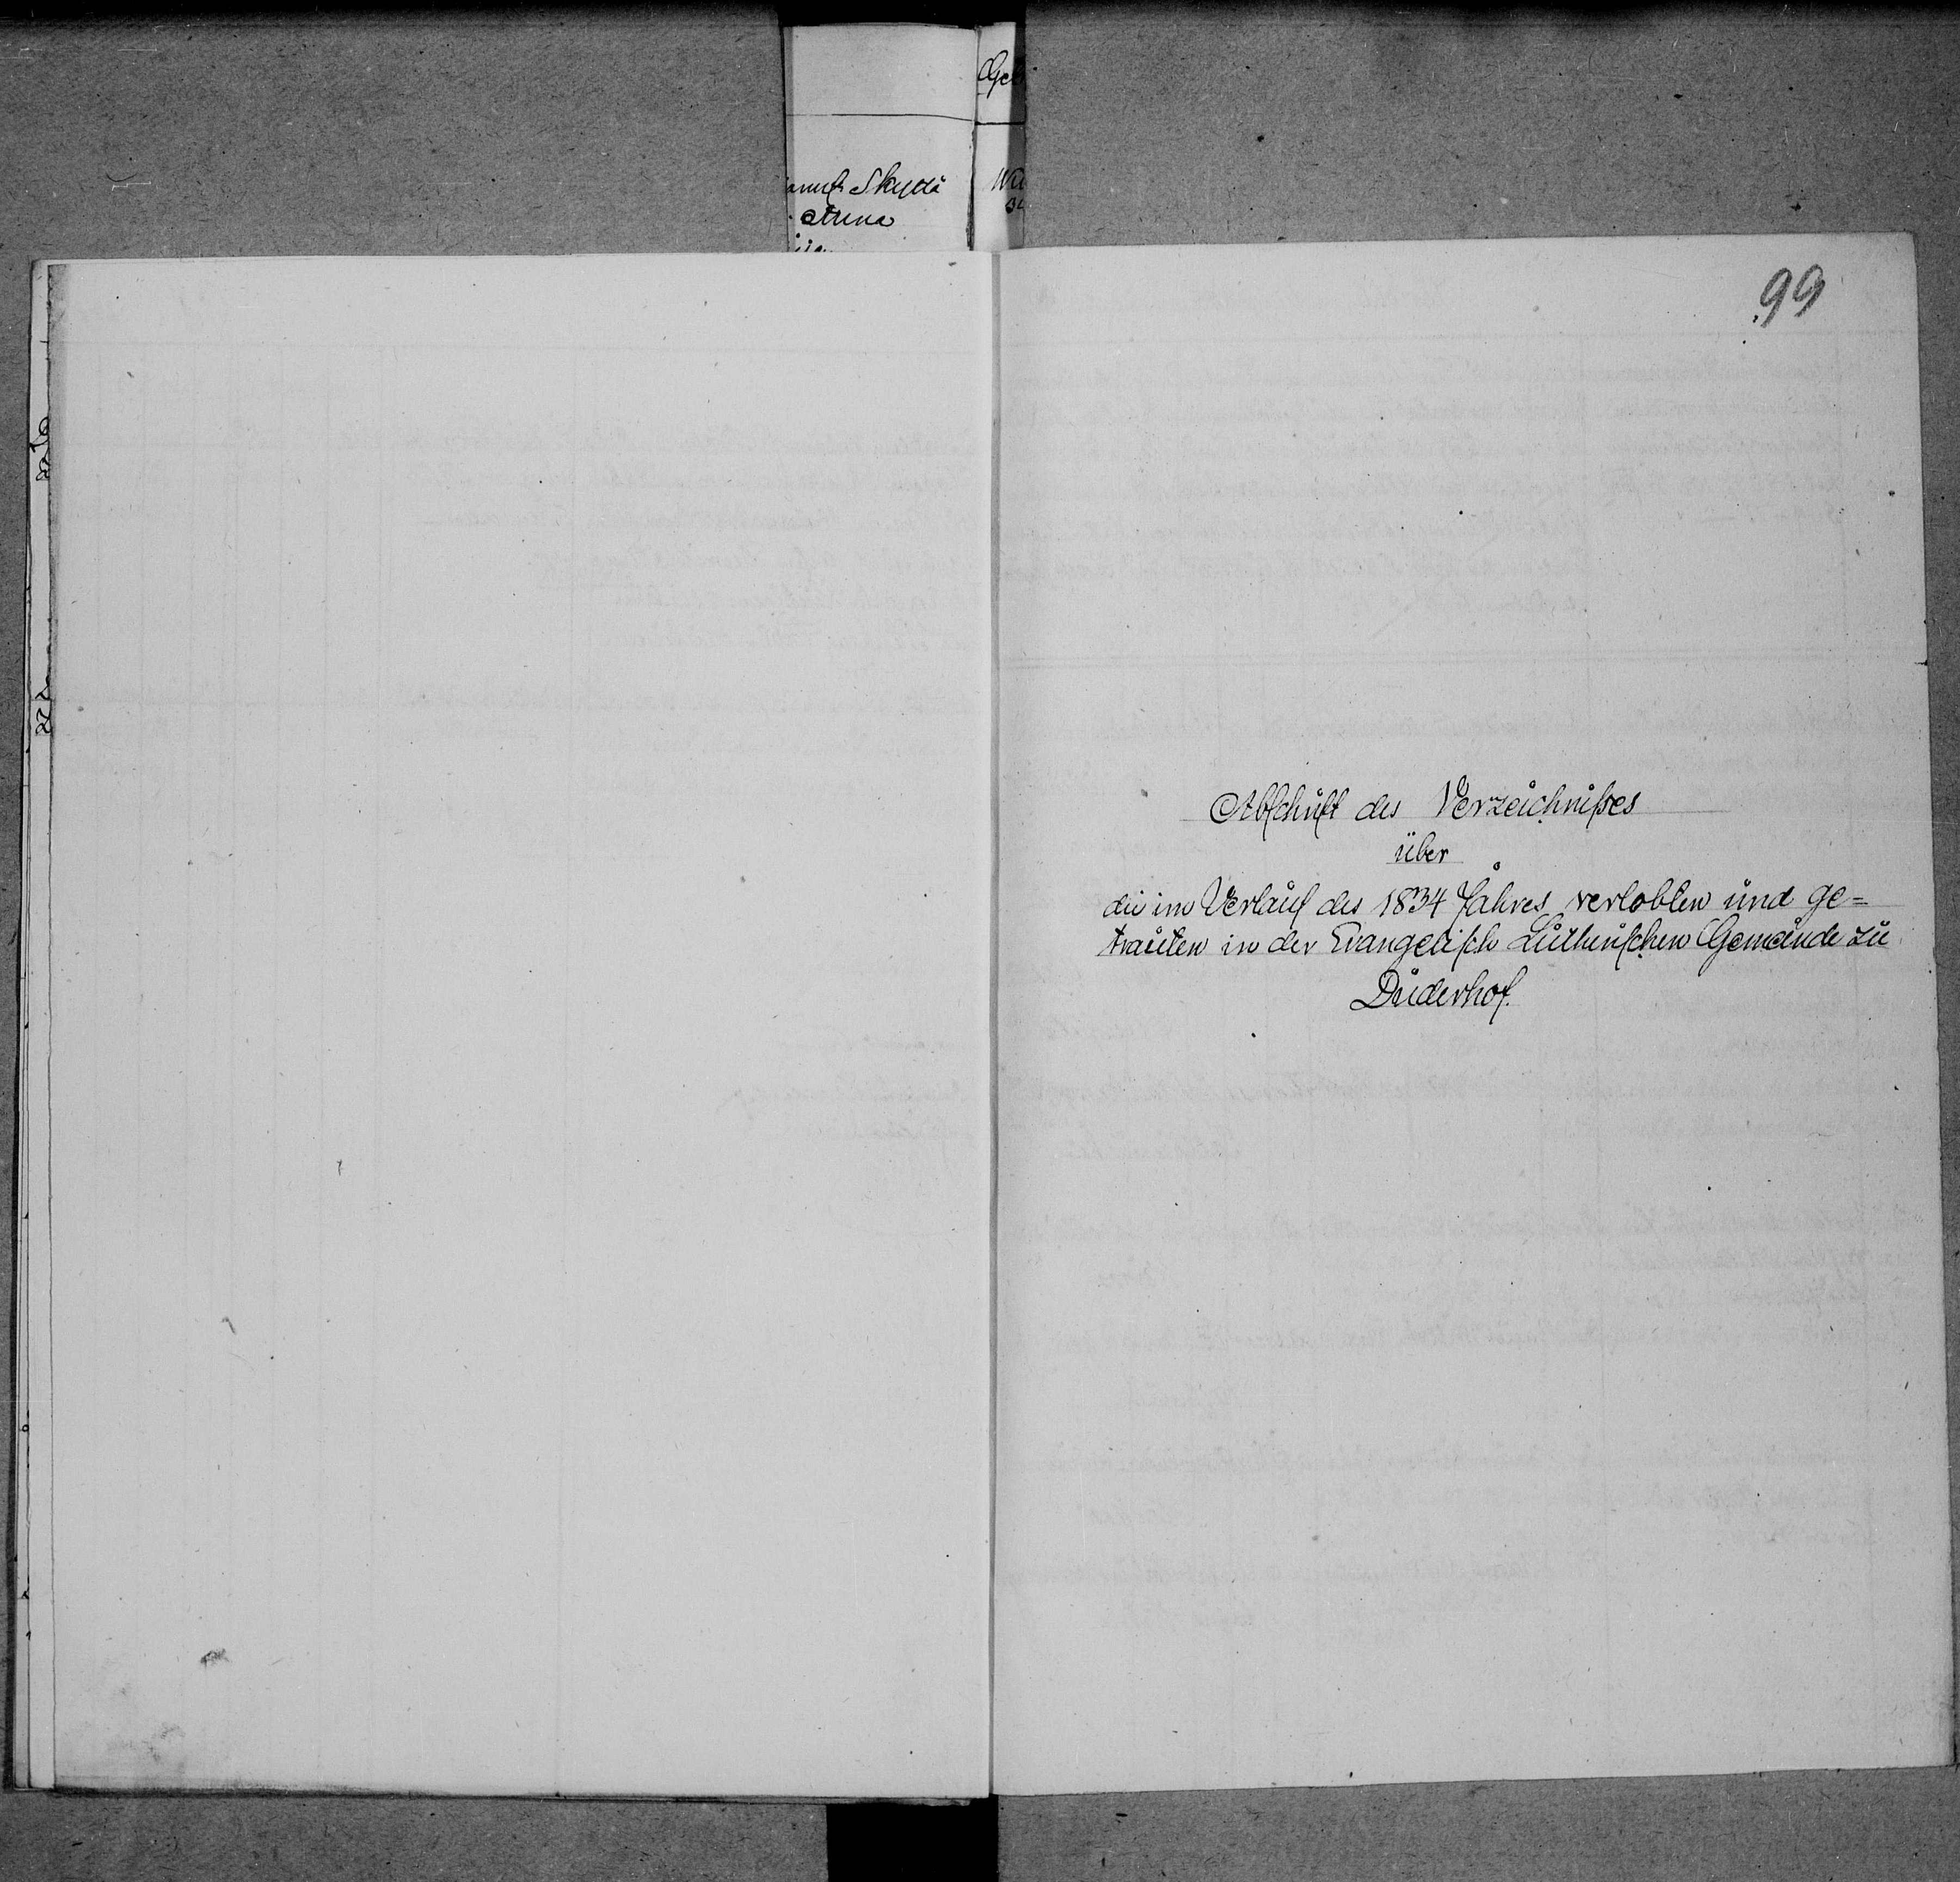 Skyttä
99
Abschrift des Verzeichnißes
über
die im Verlauf des 1834 Jahres verlobten und ge=
trauten in der Evangelisch Lutherischen Gemeinde zu
Duderhof.